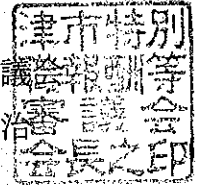 津市特別
報酬等
議
審議会
治
会長之印